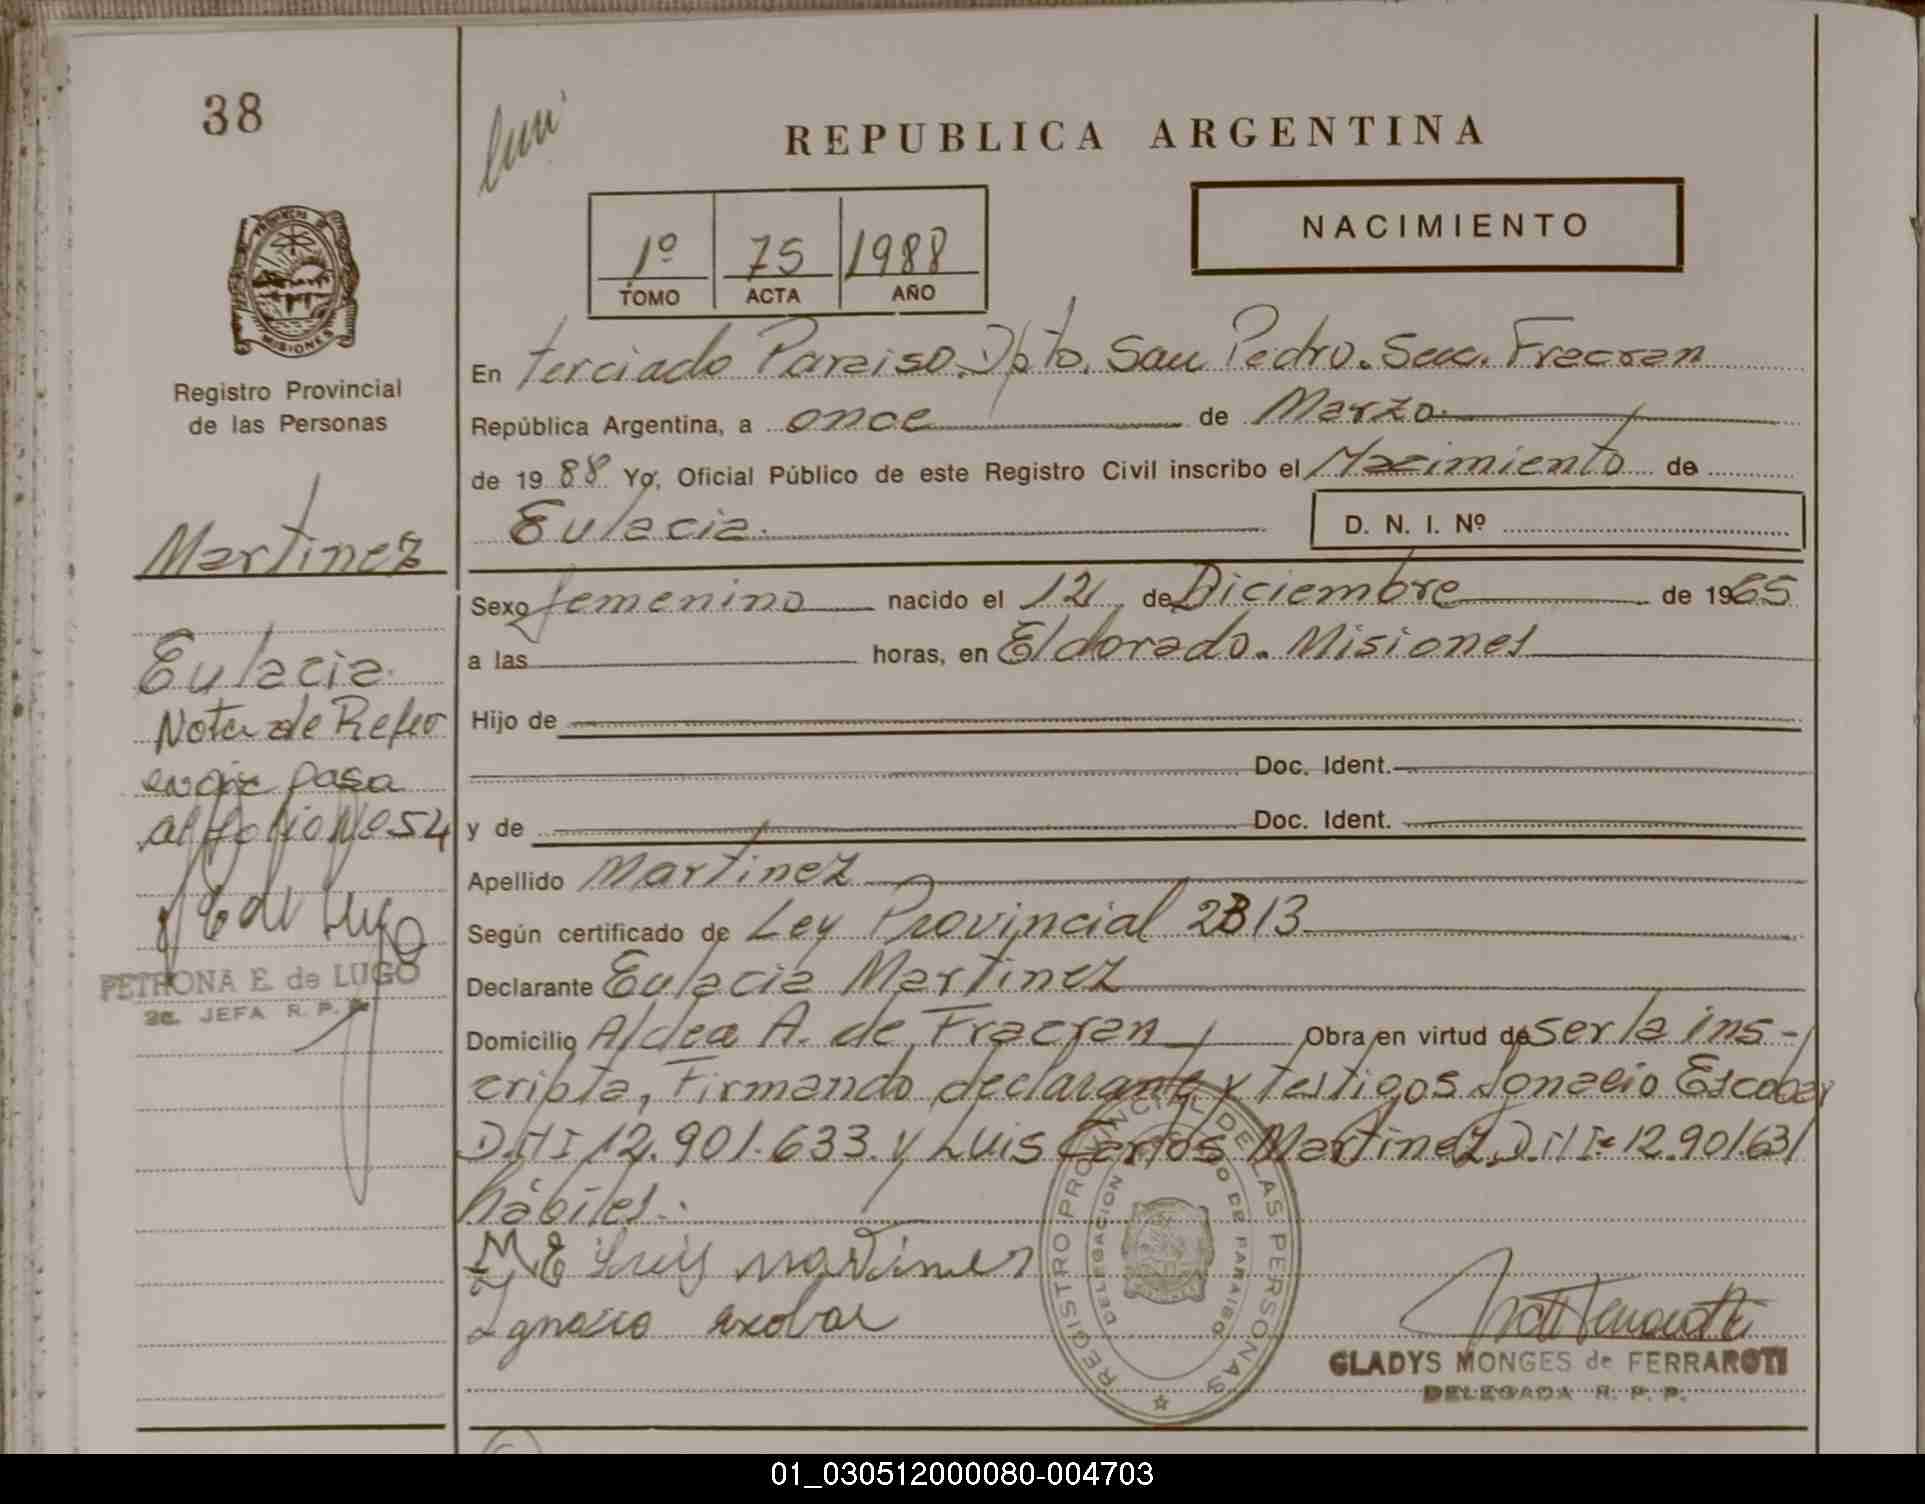 38
REPUBLICA ARGENTINA
NACIMIENTO
1º 75 1988
TOMO ACTA AÑO
PROVINCIA DE MISIONES
Registro Provincial
de las Personas
En terciado Paraiso. Dpto. San Pedro. Secc. Fracran
República Argentina, a once de Marzo
de 1988 Yo, Oficial Público de este Registro Civil inscribo el Nacimiento de
Eulacia.
D. N. I. Nº
Martinez
Sexo femenino nacido el 12 de Diciembre de 1965
a las horas, en Eldorado. Misiones
Eulacia.
Nota de Refer
encia pasa
al folio Nº 54
PETRONA E. de LUGO
2a. JEFA R. P. P.
Hijo de
Doc. Ident.
y de Doc. Ident.
Apellido Martinez
Según certificado de Ley Provincial 2313
Declarante Eulacia Martinez
Domicilio Aldea A. de Fracran Obra en virtud de ser la ins-
cripta, Firmando declarante y testigos Ignacio Escobar
D.N.I 12.901.633. y Luis Carlos Martinez D.N.I. 12.901.631
hábiles.
M E Luis martines
Ignacio exobar
REGISTRO PROVINCIAL DE LAS PERSONAS
GLADYS MONGES de FERRAROTI
DELEGADA R. P. P.
01_030512000080-004703